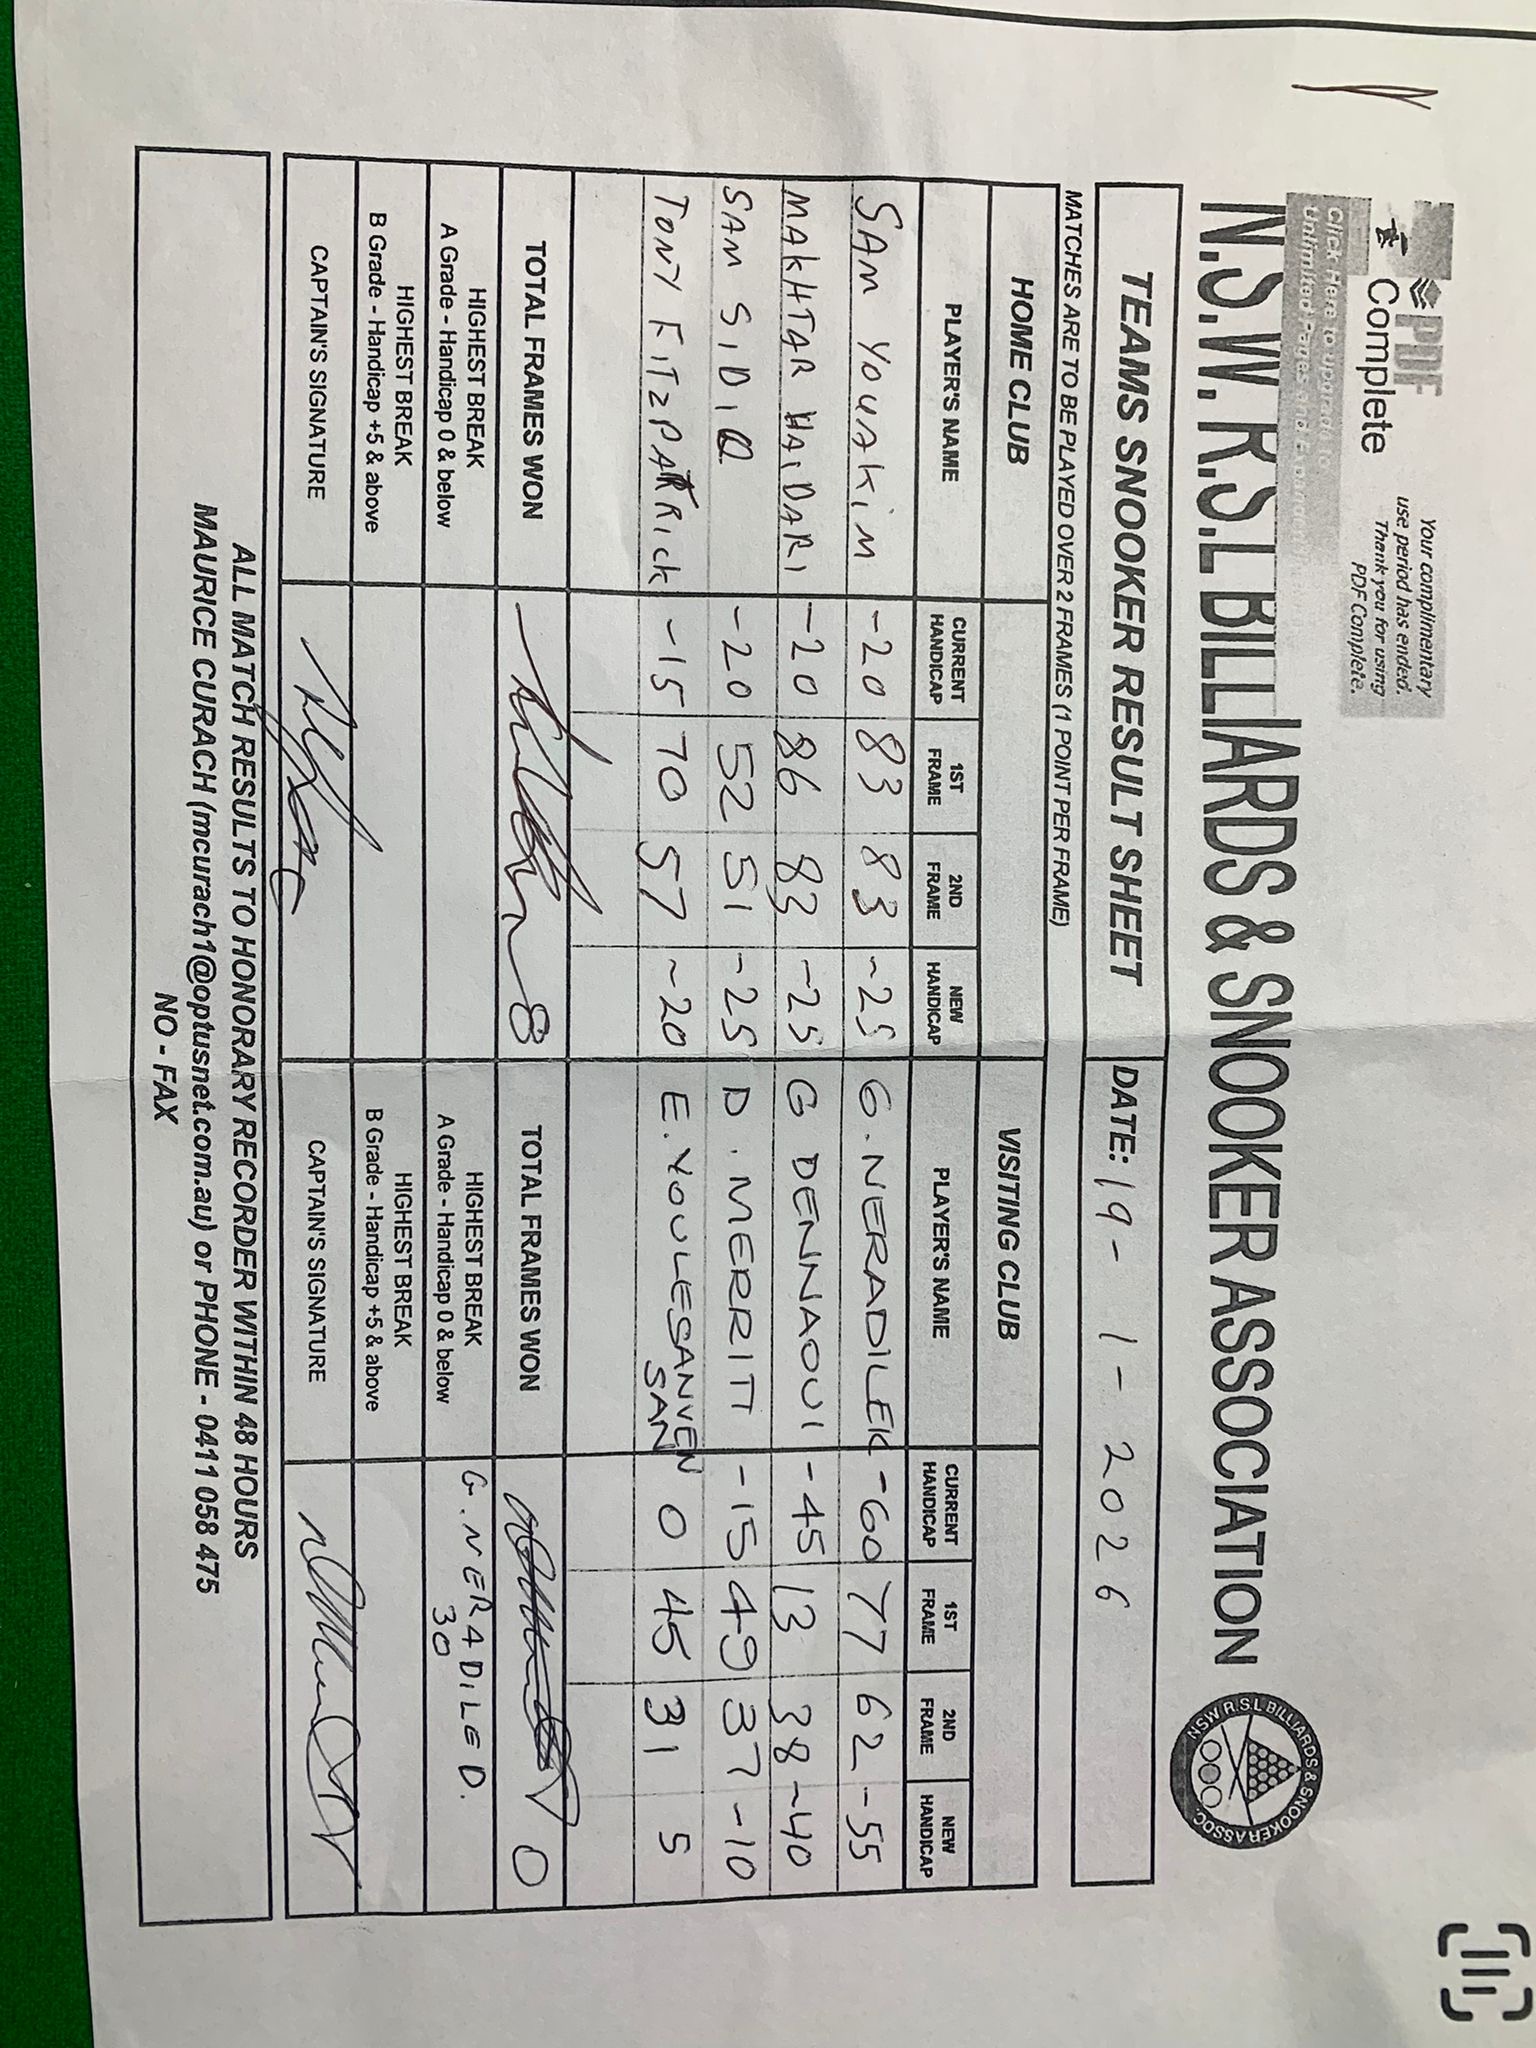 PDF
Complete
Your complimentary
use period has ended.
Thank you for using
PDF Complete.
Click Here to upgrade to
Unlimited Pages and Expanded
N.S.W. R.S.L BILLIARDS & SNOOKER ASSOCIATION
NSW R.S.L BILLIARDS & SNOOKER ASSOC.
TEAMS SNOOKER RESULT SHEET DATE: 19-1-2026
MATCHES ARE TO BE PLAYED OVER 2 FRAMES (1 POINT PER FRAME)
HOME CLUB VISITING CLUB
PLAYER'S NAME CURRENT HANDICAP 1ST FRAME 2ND FRAME NEW HANDICAP PLAYER'S NAME CURRENT HANDICAP 1ST FRAME 2ND FRAME NEW HANDICAP
SAM YOUAKIM -20 83 83 -25 G. NERADILEK -60 77 62 -55
MAKHTAR HAIDARI -20 86 83 -25 G DENNAOUI -45 13 38 -40
SAM SIDIQ -20 52 51 -25 D. MERRITT -15 49 37 -10
TONY FITZPATRICK -15 70 57 -20 E. YOULESANVEN SAN 0 45 31 5
TOTAL FRAMES WON 8 TOTAL FRAMES WON 0
HIGHEST BREAK
A Grade - Handicap 0 & below
HIGHEST BREAK
A Grade - Handicap 0 & below
G. NERADILED.
30
HIGHEST BREAK
B Grade - Handicap +5 & above
HIGHEST BREAK
B Grade - Handicap +5 & above
CAPTAIN'S SIGNATURE CAPTAIN'S SIGNATURE
ALL MATCH RESULTS TO HONORARY RECORDER WITHIN 48 HOURS
MAURICE CURACH (mcurach1@optusnet.com.au) or PHONE - 0411 058 475
NO - FAX